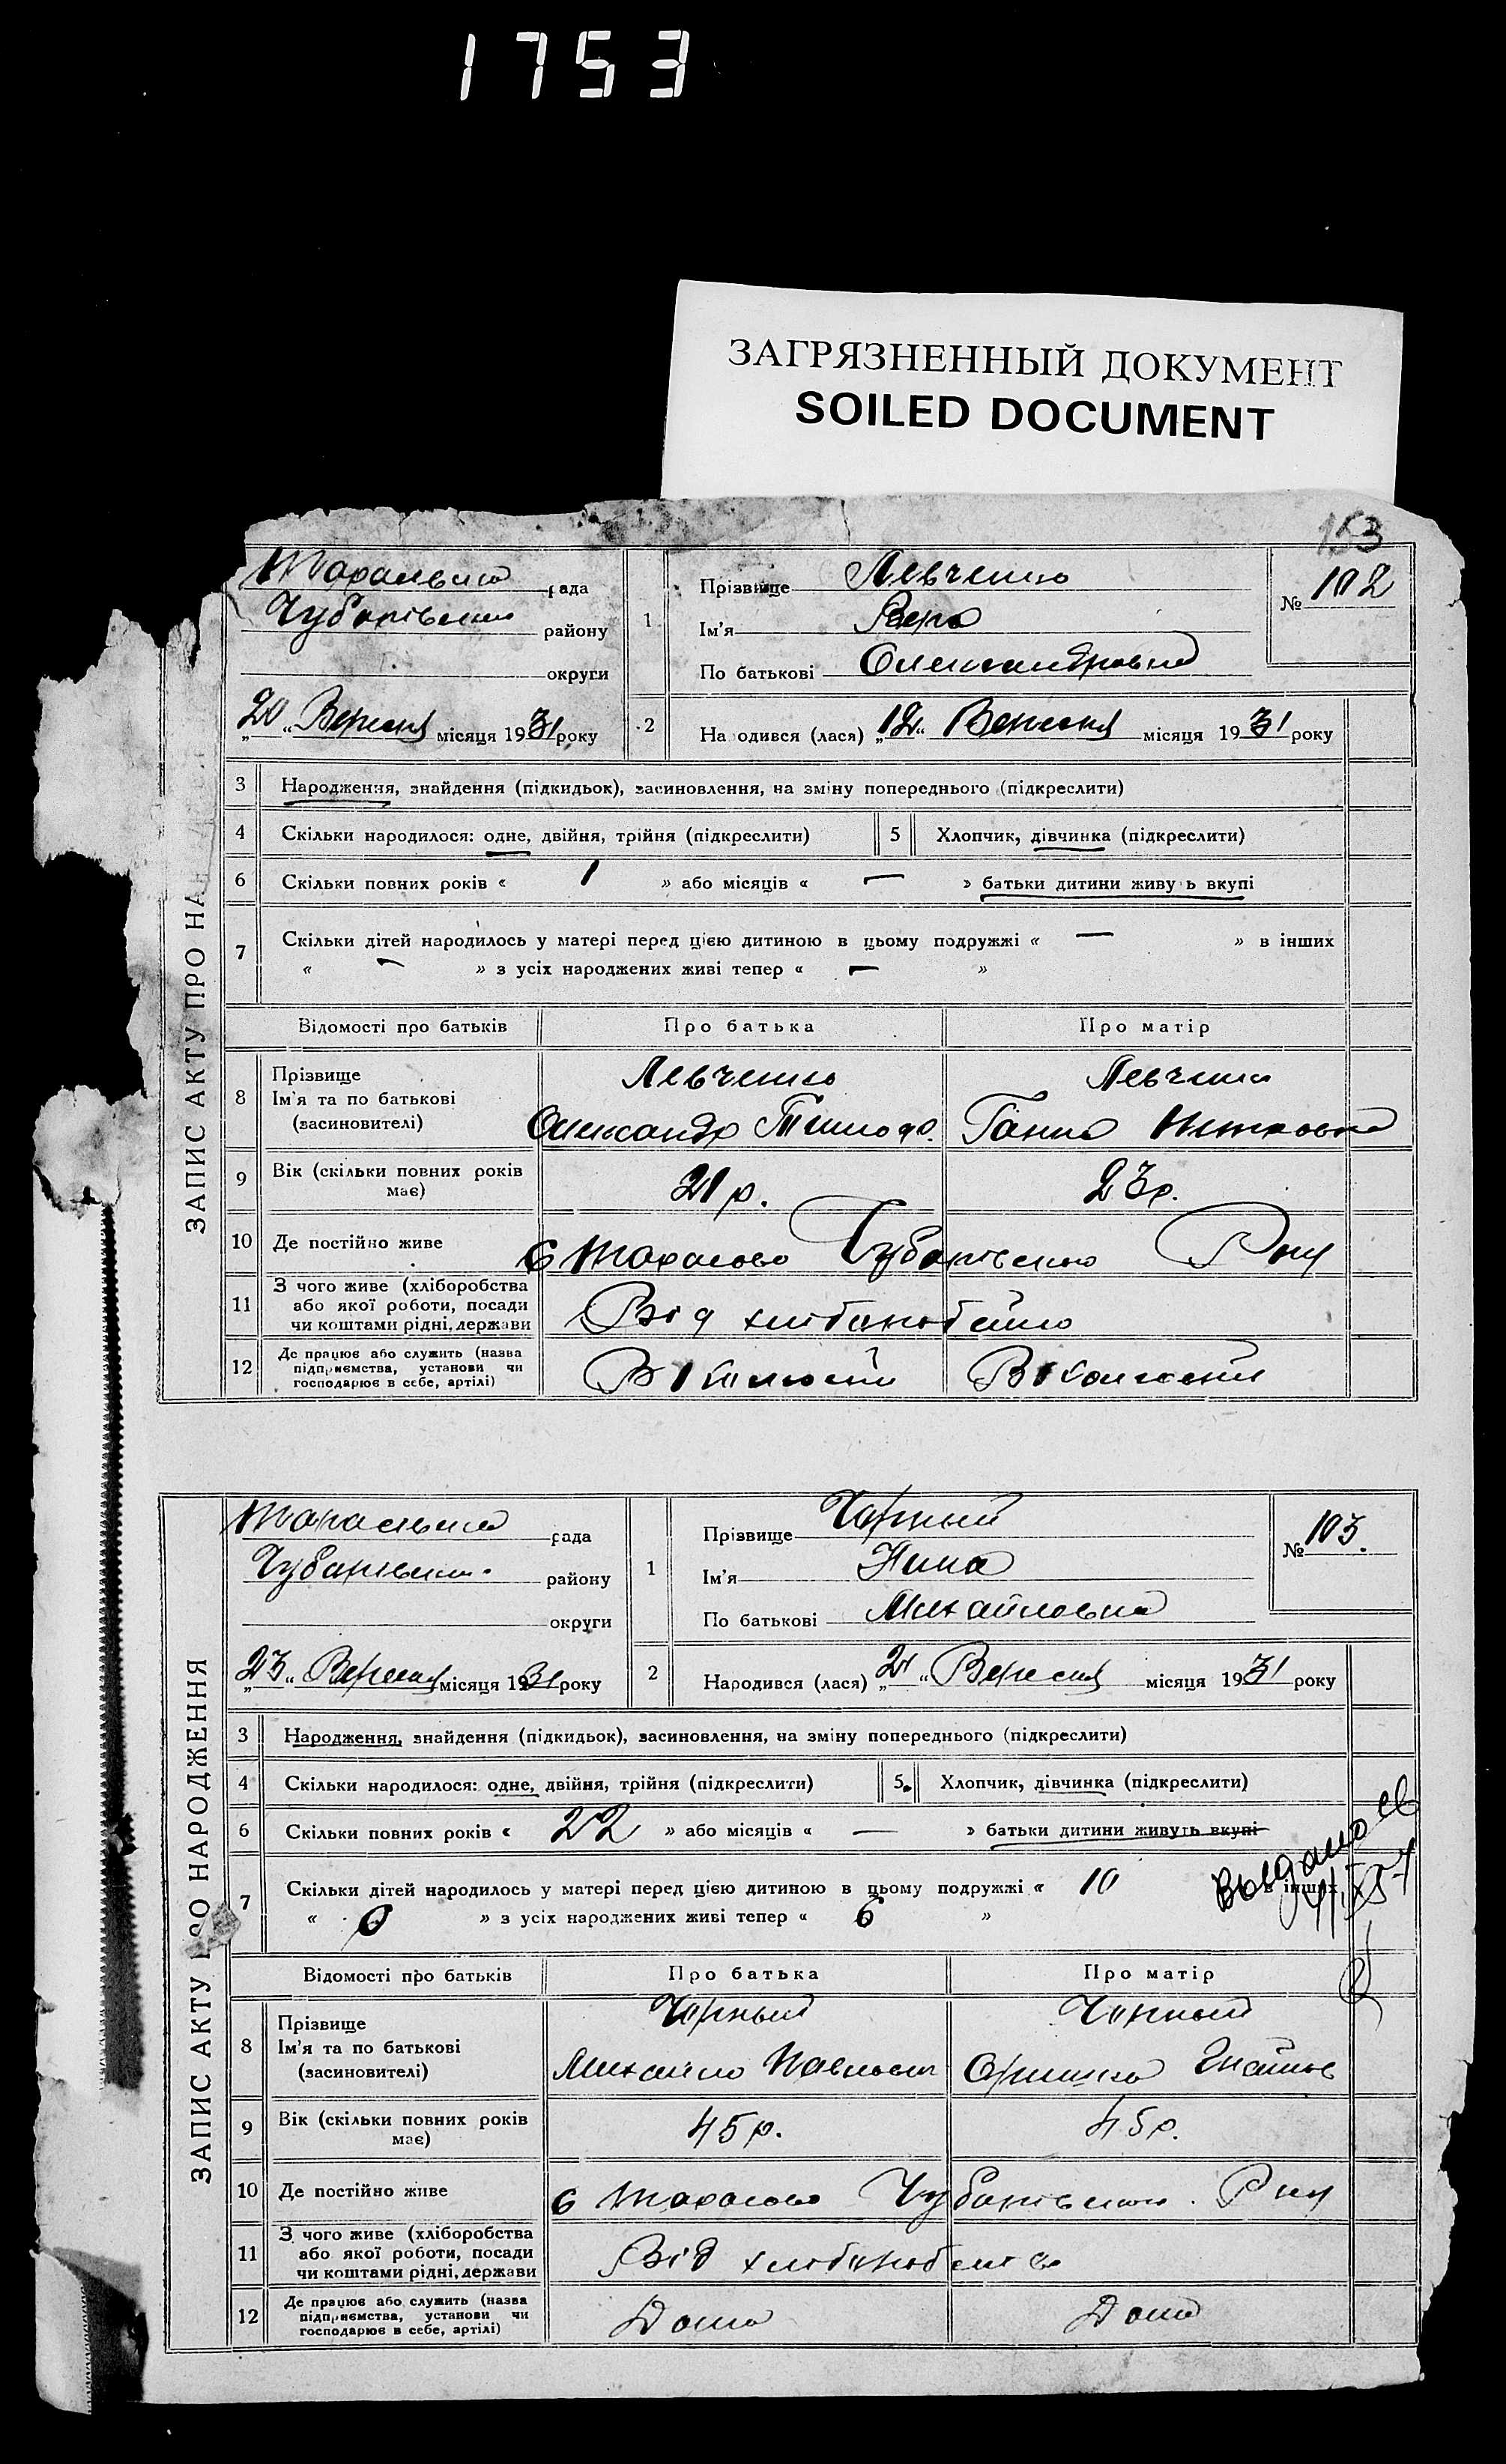 1753
ЗАГРЯЗНЕННЫЙ ДОКУМЕНТ
SOILED DOCUMENT
153
ЗАПИС АКТУ ПРО НА
рада
Чубарівсько району
округи
„20“ Вересня місяця 1931 року
1
Прізвище Левченко
Ім'я Вера
По батькові Олександровна
№ 102
2 На одився (лася) „12“ Вересня місяця 1931 року
3 Народження, знайдення (підкидьок), засиновлення, на зміну попереднього (підкреслити)
4 Скільки народилося: одне, двійня, трійня (підкреслити) 5 Хлопчик, дівчинка (підкреслити)
6 Скільки повних років « 1 » або місяців « — » батьки дитини живу ь вкупі
7 Скільки дітей народилось у матері перед цією дитиною в цьому подружжі « — » в інших
« — » з усіх народжених живі тепер « — »
Відомості про батьків Про батька Про матір
8 Прізвище Левченко Левченко
Ім'я та по батькові
(засиновителі) Олександр Ганна
9 Вік (скільки повних років має) 21 р. 23 р.
10 Де постійно живе с Тарасово Чубарівсько Р ну
11 З чого живе (хліборобства
або якої роботи, посади
чи коштами рідні, держави Від хліборобства
12 Де працює або служить (назва
підприємства, установи чи
господарює в себе, артілі)
ЗАПИС АКТУ РО НАРОДЖЕННЯ
рада
району
округи
„23“ Вересня місяця 1931 року
1
Прізвище Чорный
Ім'я Нина
По батькові Михайловна
№ 103.
2 Народився (лася) „21“ Вересня місяця 1931 року
3 Народження, знайдення (підкидьок), засиновлення, на зміну попереднього (підкреслити)
4 Скільки народилося: одне, двійня, трійня (підкреслити) 5. Хлопчик, дівчинка (підкреслити)
6 Скільки повних років « 22 » або місяців « — » батьки дитини живуть вкупі
7 Скільки дітей народилось у матері перед цією дитиною в цьому подружжі « 10 в інших
« 0 » з усіх народжених живі тепер « 6 »
Відомості про батьків Про батька Про матір
8 Прізвище Чорный Чорный
Ім'я та по батькові
(засиновителі) Михайло Павлович
9 Вік (скільки повних років має) 45 р. 45 р.
10 Де постійно живе с Тарасово Чубарівсько Р ну
11 З чого живе (хліборобства
або якої роботи, посади
чи коштами рідні, держави Від хліборобства
12 Де працює або служить (назва
підприємства, установи чи
господарює в себе, артілі) Дома Дома